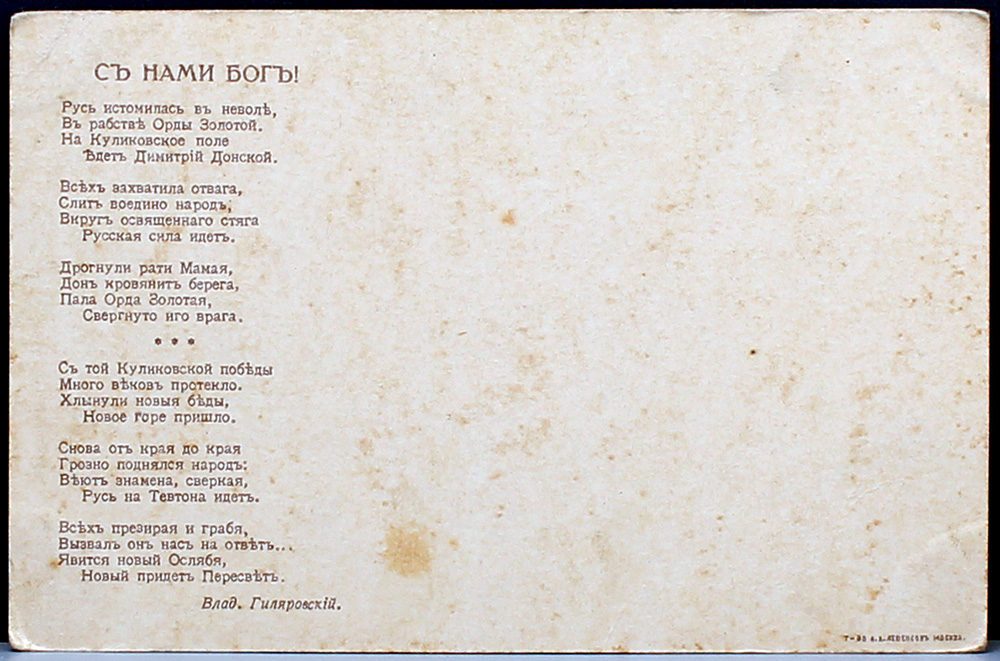 СЪ НАМИ БОГЪ!
Русь истомилась въ неволѣ,
Въ рабствѣ Орды Золотой.
На Куликовское поле
Ѣдетъ Димитрій Донской.
Всѣхъ захватила отвага,
Слитъ воедино народъ;
Вкругъ освященнаго стяга
Русская сила идетъ.
Дрогнули рати Мамая,
Донъ кровянитъ берега,
Пала Орда Золотая,
Свергнуто иго врага.
* * *
Съ той Куликовской побѣды
Много вѣковъ протекло.
Хлынули новыя бѣды,
Новое горе пришло.
Снова отъ края до края
Грозно поднялся народъ:
Вѣютъ знамена, сверкая,
Русь на Тевтона идетъ.
Всѣхъ презирая и грабя,
Вызвалъ онъ насъ на отвѣтъ...
Явится новый Ослябя,
Новый придетъ Пересвѣтъ.
Влад. Гиляровскій.
Т-во А.А. МОСКВА.